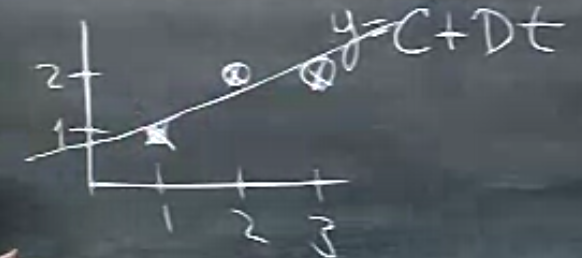 y=C+Dt
2
1
1 2 3